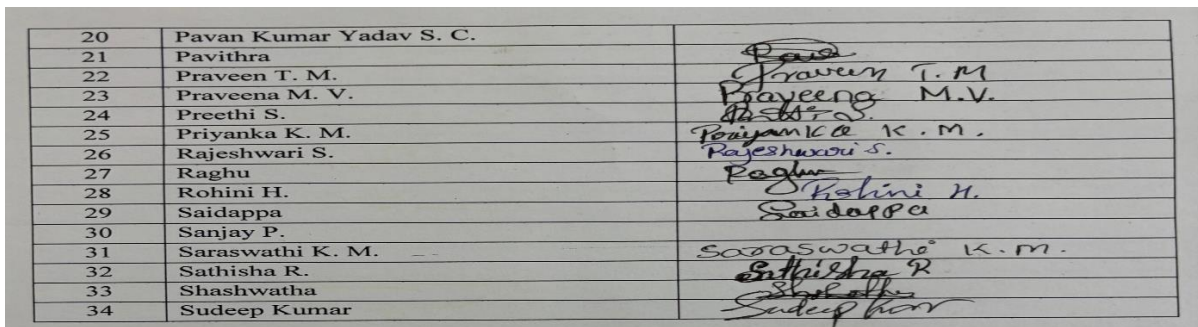 20 Pavan Kumar Yadav S. C.
21 Pavithra
22 Praveen T. M. Praveen T. M
23 Praveena M. V. Praveena M.V.
24 Preethi S.
25 Priyanka K. M. Poriyanka K. M.
26 Rajeshwari S. Rajeshwari S.
27 Raghu Raghu
28 Rohini H. Rohini H.
29 Saidappa Saidappa
30 Sanjay P.
31 Saraswathi K. M. Saraswathi K. m.
32 Sathisha R. Sathisha R
33 Shashwatha
34 Sudeep Kumar Sudeep Kumar